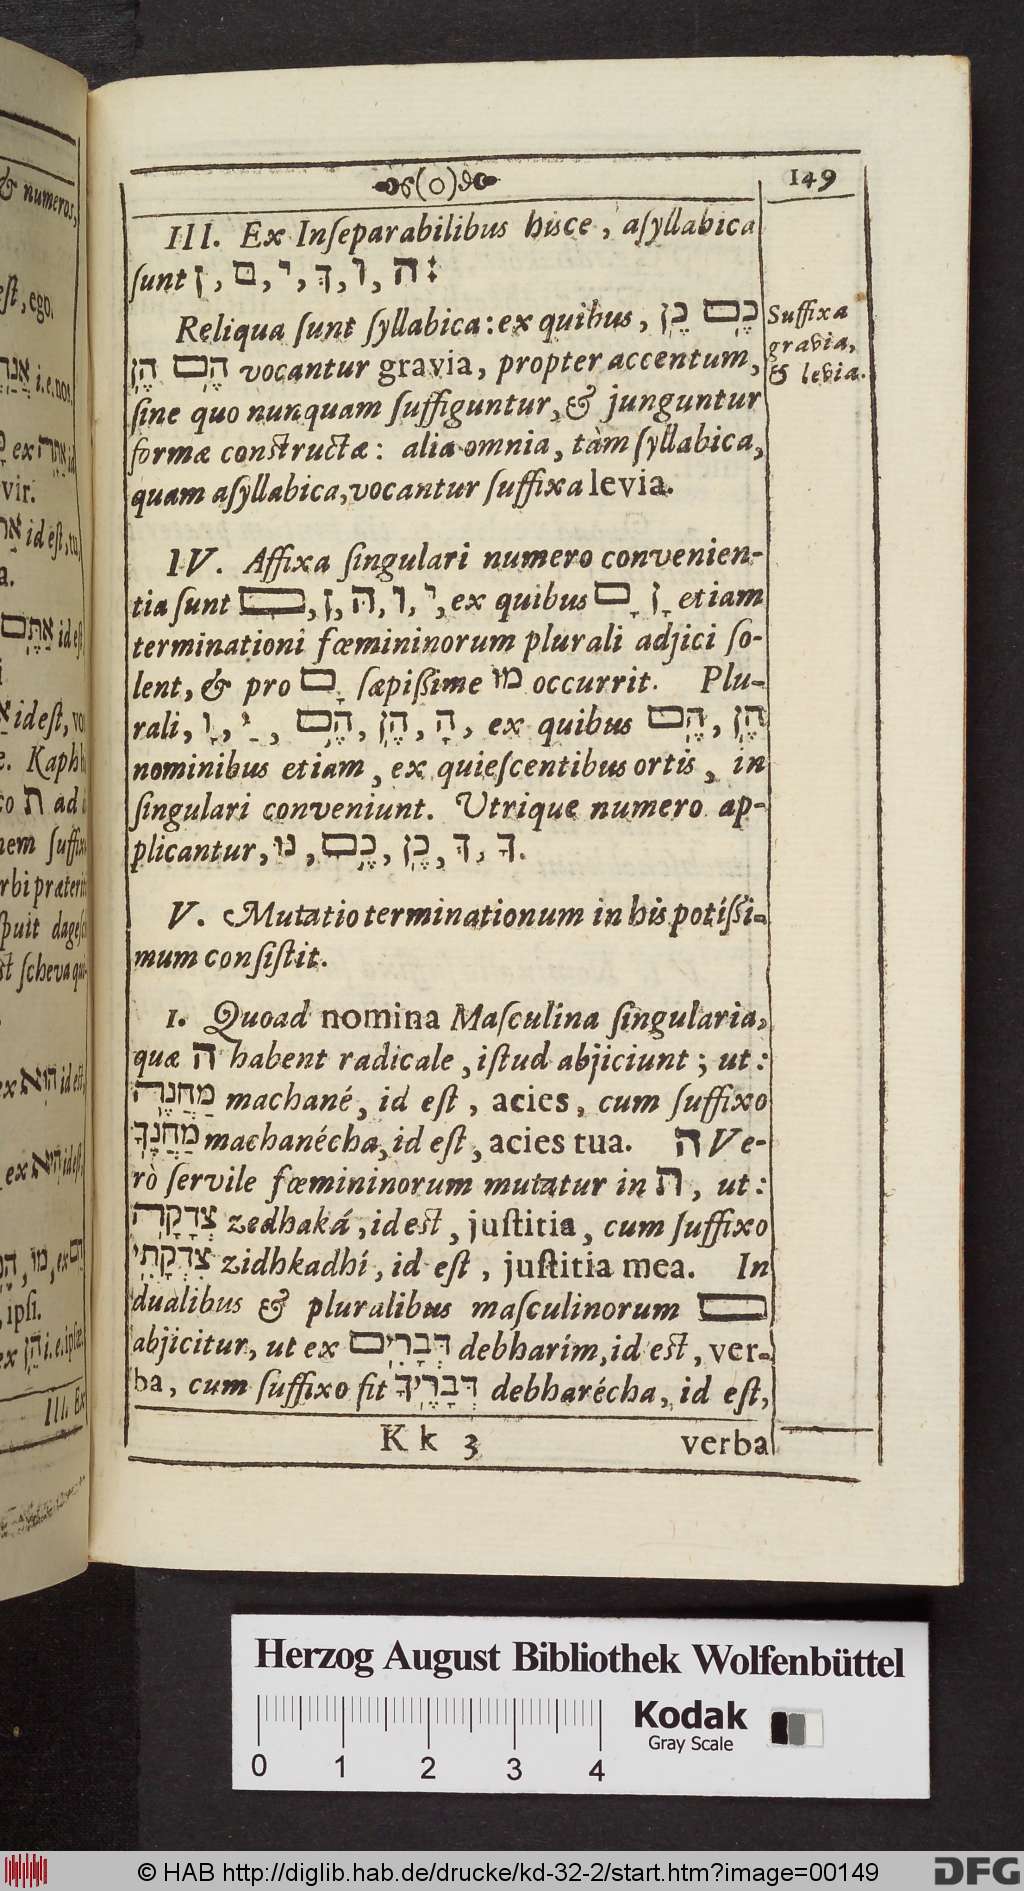 & numeros,
eſt, ego.
i.e. nos.
ex id
vir.
id eſt, tu,
a.
אַתֶּם id eſt
i
id eſt, vo
e. Kaph
co ת ad
nem ſuffi
rbi præterit
ſpuit dageſch
ſt ſcheva qui-
ex הִיא id eſt,
ex הִיא id eſt,
, מוֹ, ex
, ipſi.
ex הֵן i.e. ipſæ
III. Ex
149
III. Ex Inſeparabilibus hisce, aſyllabica
ſunt ה, ו, ךְ, י, ם, ן :
Reliqua ſunt ſyllabica: ex quibus, כֶם כֶן
הֶם הֶן vocantur gravia, propter accentum,
ſine quo nunquam ſuffiguntur, & junguntur
formæ conſtructæ: alia omnia, tàm ſyllabica,
quam aſyllabica, vocantur ſuffixa levia.
Suffixa
gravia,
& levia.
IV. Affixa ſingulari numero convenien-
tia ſunt י, ו, הּ, ן, ם, ex quibus ָן ָם etiam
terminationi fœmininorum plurali adjici ſo-
lent, & pro ָם ſæpiſſime מוֹ occurrit. Plu-
rali, הָ, הֶן, הֶם, ַי, ָו, ex quibus הֶן, הֶם
nominibus etiam, ex quieſcentibus ortis, in
ſingulari conveniunt. Utrique numero ap-
plicantur, ךָ, ךְ, כֶן, כֶם, נוּ.
V. Mutatio terminationum in his potíſſi-
mum conſiſtit.
1. Quoad nomina Maſculina ſingularia,
quæ ה habent radicale, iſtud abjiciunt; ut:
מַחֲנֶה machané, id eſt, acies, cum ſuffixo
מַחֲנֶךָ machanécha, id eſt, acies tua. ה Ve-
rò ſervile fœmininorum mutatur in ת, ut:
צְדָקָה zedhaká, id eſt, juſtitia, cum ſuffixo
צִדְקָתִי zidhkadhí, id eſt, juſtitia mea. In
dualibus & pluralibus maſculinorum ם
abjicitur, ut ex דְּבָרִים debharím, id eſt, ver-
ba, cum ſuffixo fit דְּבָרֶיךָ debharécha, id eſt,
K k 3 verba
Herzog August Bibliothek Wolfenbüttel
Kodak
Gray Scale
0 1 2 3 4
© HAB http://diglib.hab.de/drucke/kd-32-2/start.htm?image=00149
DFG